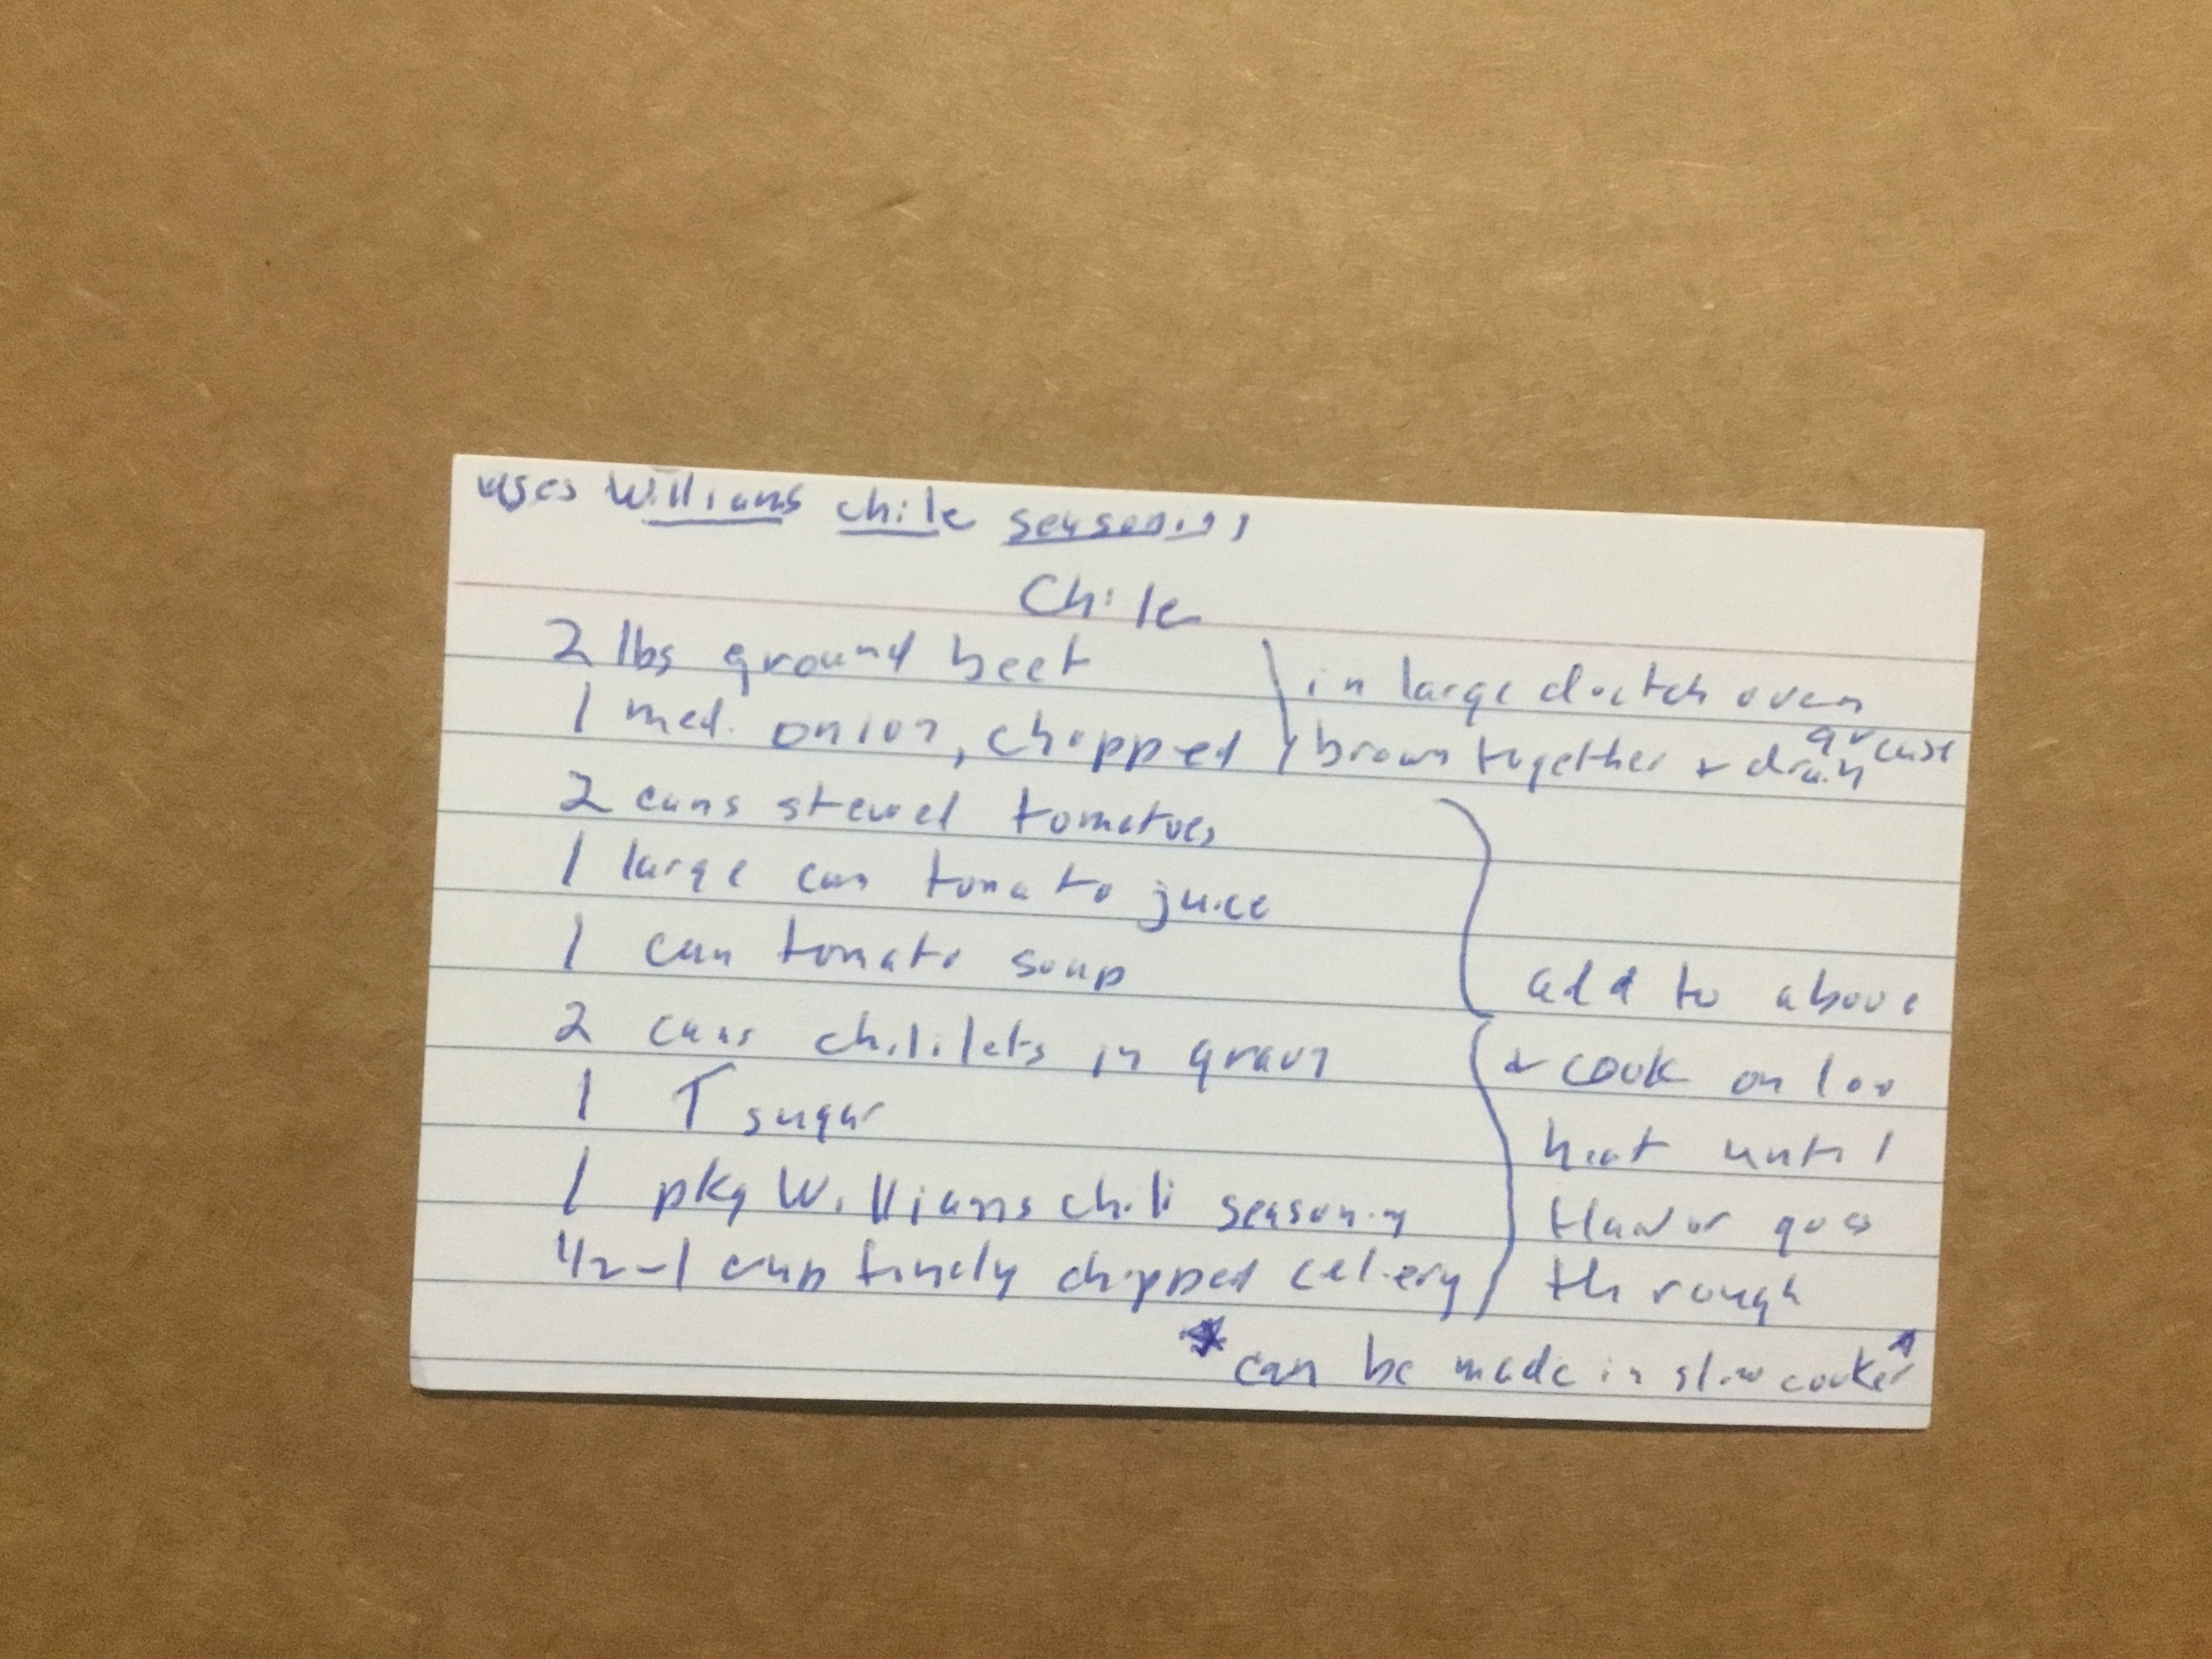 uses Williams chile seasoning
Chile
2 lbs ground beef
1 med. onion, chopped
in large dutch oven
brown together & drain grease
2 cans stewed tomatoes
1 large can tomato juice
1 can tomato soup
2 cans chililets in gravy
1 T sugar
1 pkg Williams chili seasoning
1/2-1 cup finely chopped celery
add to above
& cook on low
heat until
flavor goes
through
*can be made in slow cooker*